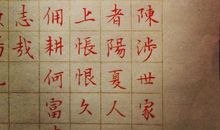 陳涉世家
者陽夏人
上悵恨久
佣耕何富
志哉